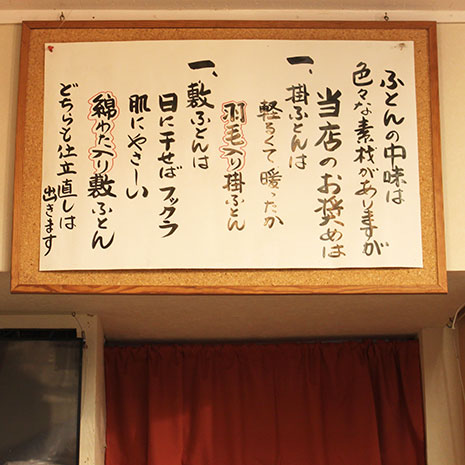 ふとんの中味は
色々な素材がありますが
当店のお奨めは
一、掛ふとんは
軽るくて暖ったか
羽毛入り掛ふとん
一、敷ふとんは
日に干せばフックラ
肌にやさしい
綿わた入り敷ふとん
どちらも仕立直しは
出きます